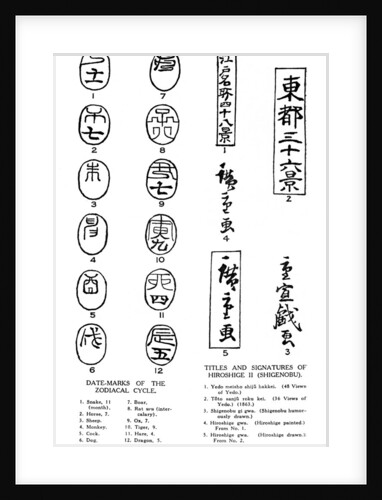 1
2
3
4
5
6
7
8
9
10
11
12
江戸名所四十八景
1
東都三十六景
2
廣重画
4
廣重画
5
重宣戯画
3
DATE-MARKS OF THE
ZODIACAL CYCLE.
1. Snake, 11
(month).
2. Horse, 7.
3. Sheep.
4. Monkey.
5. Cock.
6. Dog.
7. Boar.
8. Rat ura (inter-
calary).
9. Ox, 7.
10. Tiger, 9.
11. Hare, 4.
12. Dragon, 5.
TITLES AND SIGNATURES OF
HIROSHIGE II (SHIGENOBU).
1. Yedo meisho shijū hakkei. (48 Views
of Yedo.)
2. Tōto sanjū roku kei. (36 Views of
Yedo.) (1863.)
3. Shigenobu gi gwa. (Shigenobu humor-
ously drawn.)
4. Hiroshige gwa. (Hiroshige painted.)
From No. 1.
5. Hiroshige gwa. (Hiroshige drawn.)
From No. 2.